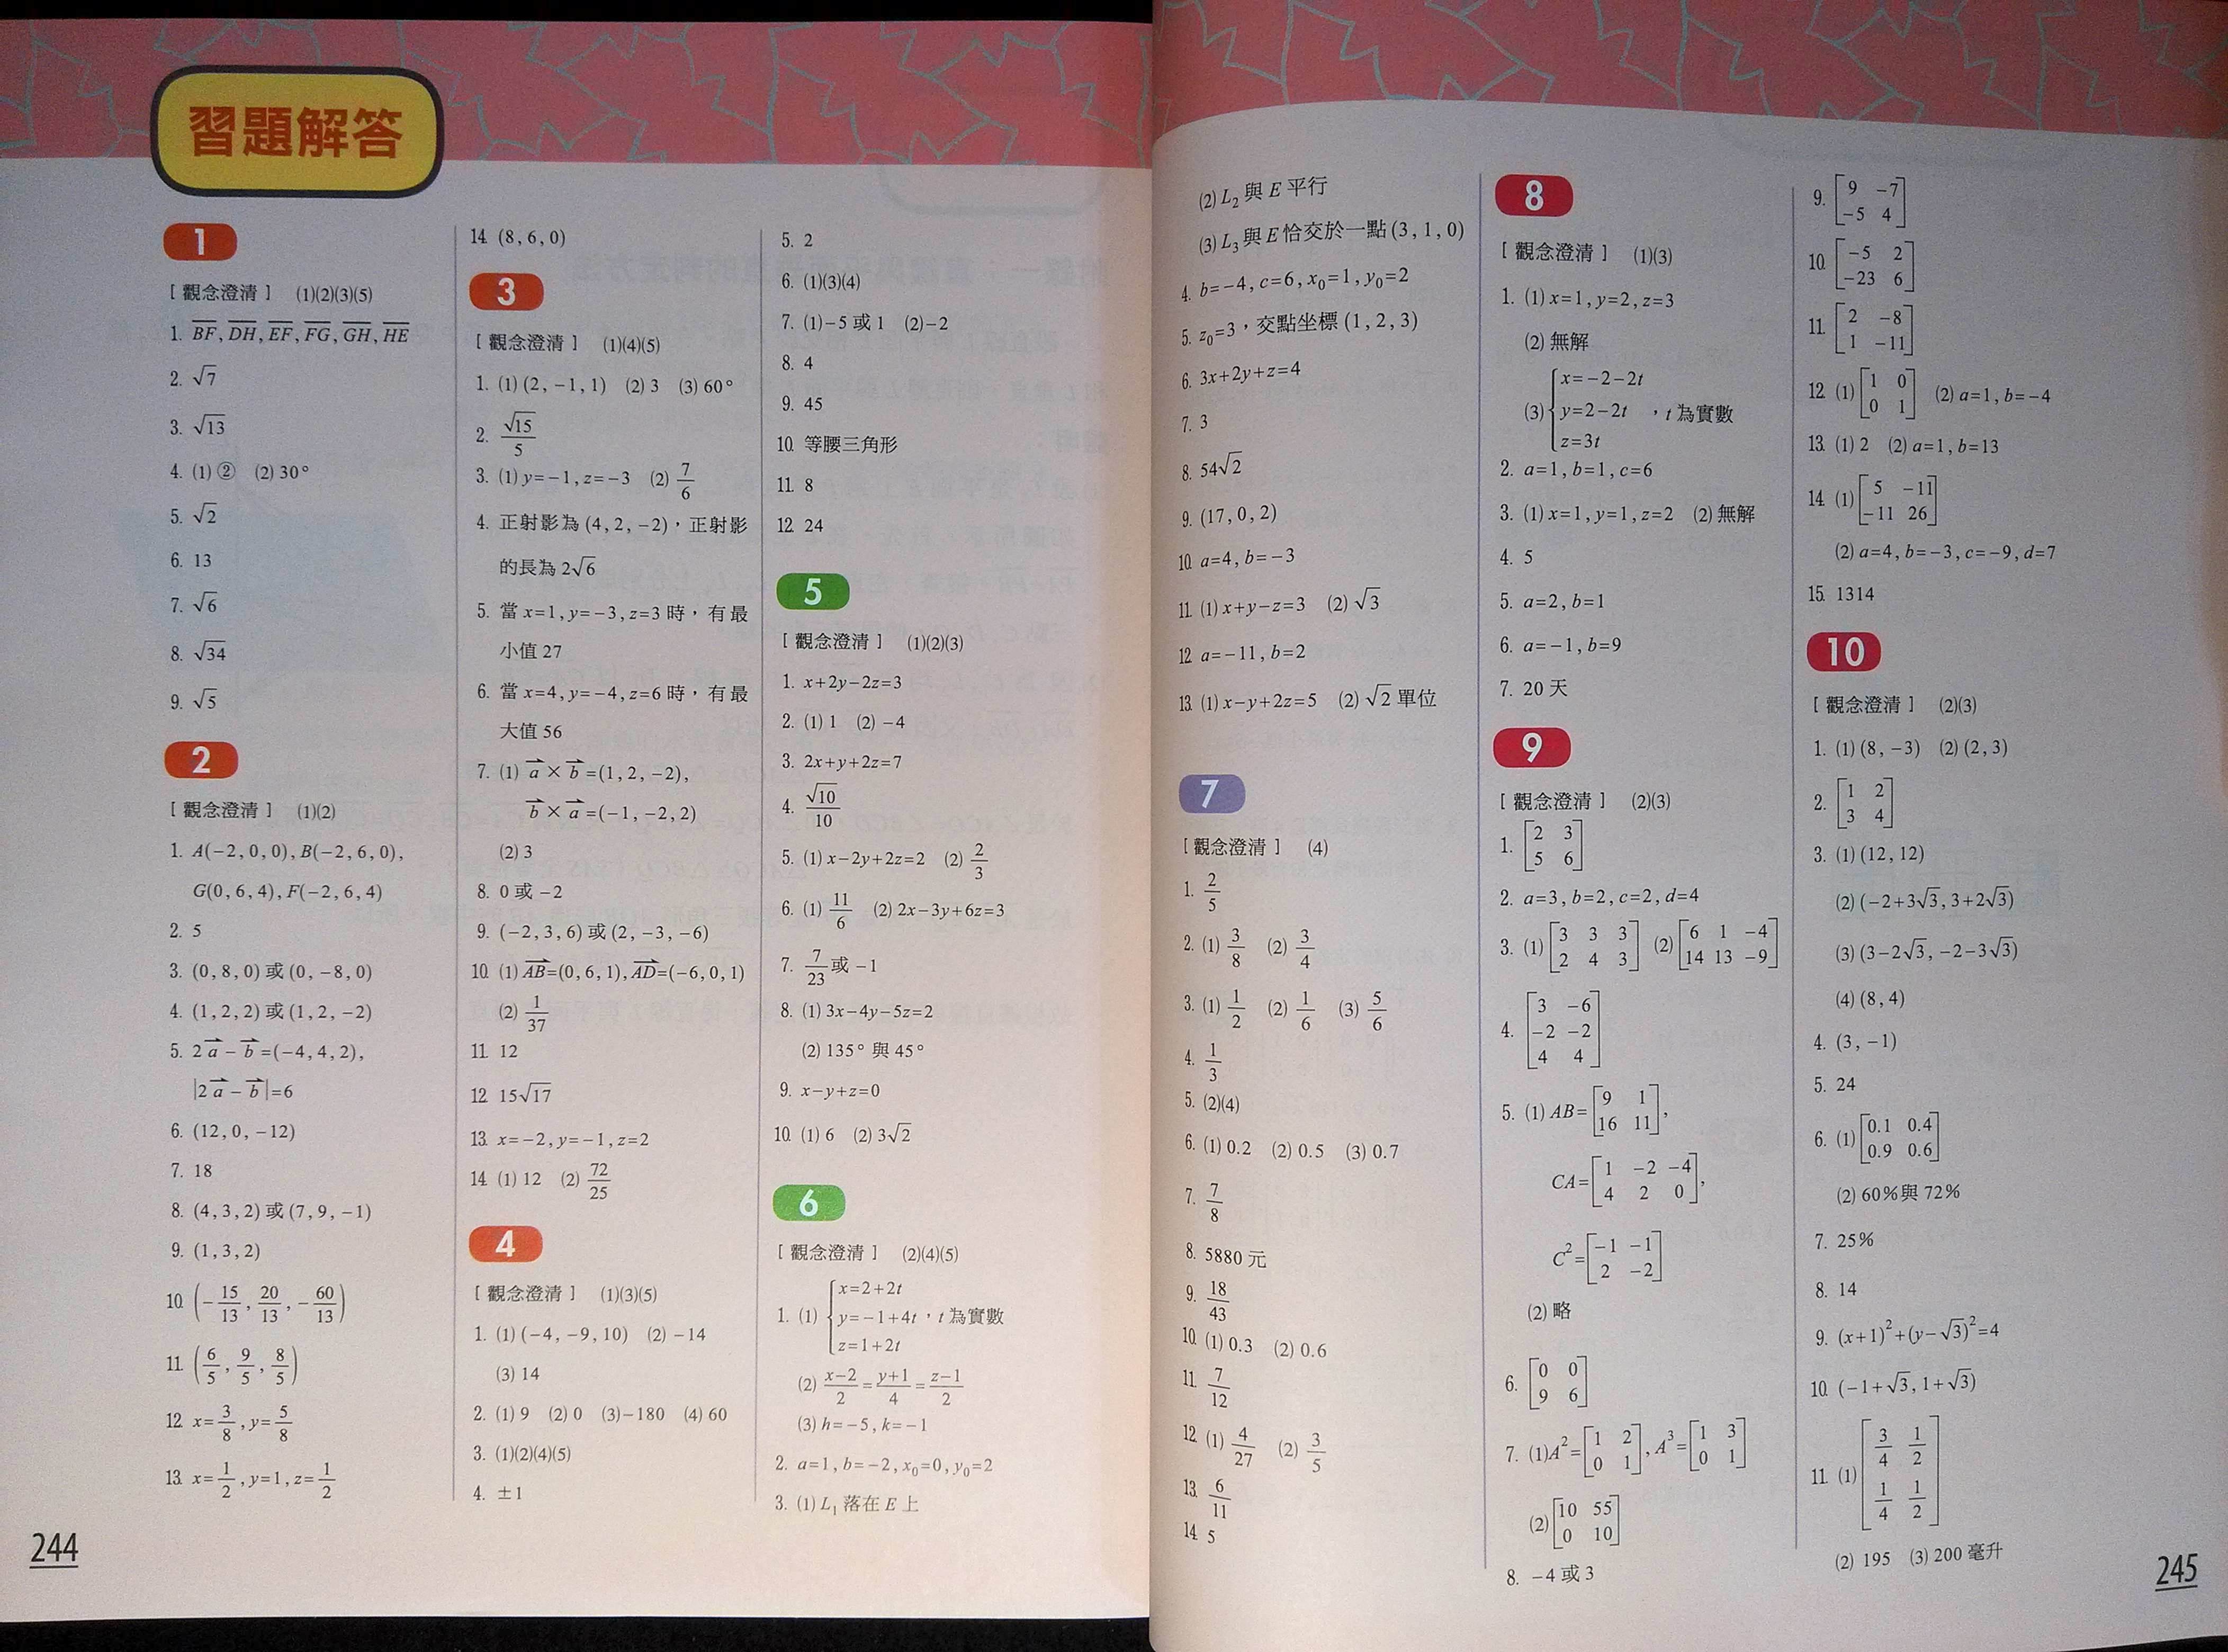 習題解答
1
[ 觀念澄清 ] (1)(2)(3)(5)
1. $\overline{BF}, \overline{DH}, \overline{EF}, \overline{FG}, \overline{GH}, \overline{HE}$
2. √7
3. √13
4. (1) ② (2) 30°
5. √2
6. 13
7. √6
8. √34
9. √5
2
[ 觀念澄清 ] (1)(2)
1. A(−2, 0, 0), B(−2, 6, 0),
G(0, 6, 4), F(−2, 6, 4)
2. 5
3. (0, 8, 0) 或 (0, −8, 0)
4. (1, 2, 2) 或 (1, 2, −2)
5. $2\vec{a}-\vec{b}$=(−4, 4, 2),
$|2\vec{a}-\vec{b}|$=6
6. (12, 0, −12)
7. 18
8. (4, 3, 2) 或 (7, 9, −1)
9. (1, 3, 2)
10. $\left(-\frac{15}{13}, \frac{20}{13}, -\frac{60}{13}\right)$
11. $\left(\frac{6}{5}, \frac{9}{5}, \frac{8}{5}\right)$
12. $x=\frac{3}{8}, y=\frac{5}{8}$
13. $x=\frac{1}{2}, y=1, z=\frac{1}{2}$
14. (8, 6, 0)
3
[ 觀念澄清 ] (1)(4)(5)
1. (1) (2, −1, 1) (2) 3 (3) 60°
2. $\frac{\sqrt{15}}{5}$
3. (1) y=−1, z=−3 (2) $\frac{7}{6}$
4. 正射影為 (4, 2, −2)，正射影
的長為 2√6
5. 當 x=1, y=−3, z=3 時，有最
小值 27
6. 當 x=4, y=−4, z=6 時，有最
大值 56
7. (1) $\vec{a}\times\vec{b}$=(1, 2, −2),
$\vec{b}\times\vec{a}$=(−1, −2, 2)
(2) 3
8. 0 或 −2
9. (−2, 3, 6) 或 (2, −3, −6)
10. (1) $\overrightarrow{AB}$=(0, 6, 1), $\overrightarrow{AD}$=(−6, 0, 1)
(2) $\frac{1}{37}$
11. 12
12. 15√17
13. x=−2, y=−1, z=2
14. (1) 12 (2) $\frac{72}{25}$
4
[ 觀念澄清 ] (1)(3)(5)
1. (1) (−4, −9, 10) (2) −14
(3) 14
2. (1) 9 (2) 0 (3)−180 (4) 60
3. (1)(2)(4)(5)
4. ±1
5. 2
6. (1)(3)(4)
7. (1)−5 或 1 (2)−2
8. 4
9. 45
10. 等腰三角形
11. 8
12. 24
5
[ 觀念澄清 ] (1)(2)(3)
1. x+2y−2z=3
2. (1) 1 (2) −4
3. 2x+y+2z=7
4. $\frac{\sqrt{10}}{10}$
5. (1) x−2y+2z=2 (2) $\frac{2}{3}$
6. (1) $\frac{11}{6}$ (2) 2x−3y+6z=3
7. $\frac{7}{23}$ 或 −1
8. (1) 3x−4y−5z=2
(2) 135° 與 45°
9. x−y+z=0
10. (1) 6 (2) 3√2
6
[ 觀念澄清 ] (2)(4)(5)
1. (1) $\begin{cases}x=2+2t\\y=-1+4t\\z=1+2t\end{cases}$，t 為實數
(2) $\frac{x-2}{2}=\frac{y+1}{4}=\frac{z-1}{2}$
(3) h=−5, k=−1
2. a=1, b=−2, x₀=0, y₀=2
3. (1) L₁ 落在 E 上
244
(2) L₂ 與 E 平行
(3) L₃ 與 E 恰交於一點 (3, 1, 0)
4. b=−4, c=6, x₀=1, y₀=2
5. z₀=3，交點坐標 (1, 2, 3)
6. 3x+2y+z=4
7. 3
8. 54√2
9. (17, 0, 2)
10. a=4, b=−3
11. (1) x+y−z=3 (2) √3
12. a=−11, b=2
13. (1) x−y+2z=5 (2) √2 單位
7
[ 觀念澄清 ] (4)
1. $\frac{2}{5}$
2. (1) $\frac{3}{8}$ (2) $\frac{3}{4}$
3. (1) $\frac{1}{2}$ (2) $\frac{1}{6}$ (3) $\frac{5}{6}$
4. $\frac{1}{3}$
5. (2)(4)
6. (1) 0.2 (2) 0.5 (3) 0.7
7. $\frac{7}{8}$
8. 5880 元
9. $\frac{18}{43}$
10. (1) 0.3 (2) 0.6
11. $\frac{7}{12}$
12. (1) $\frac{4}{27}$ (2) $\frac{3}{5}$
13. $\frac{6}{11}$
14. 5
8
[ 觀念澄清 ] (1)(3)
1. (1) x=1, y=2, z=3
(2) 無解
(3) $\begin{cases}x=-2-2t\\y=2-2t\\z=3t\end{cases}$，t 為實數
2. a=1, b=1, c=6
3. (1) x=1, y=1, z=2 (2) 無解
4. 5
5. a=2, b=1
6. a=−1, b=9
7. 20 天
9
[ 觀念澄清 ] (2)(3)
1. $\begin{bmatrix}2&3\\5&6\end{bmatrix}$
2. a=3, b=2, c=2, d=4
3. (1) $\begin{bmatrix}3&3&3\\2&4&3\end{bmatrix}$ (2) $\begin{bmatrix}6&1&-4\\14&13&-9\end{bmatrix}$
4. $\begin{bmatrix}3&-6\\-2&-2\\4&4\end{bmatrix}$
5. (1) $AB=\begin{bmatrix}9&1\\16&11\end{bmatrix}$,
$CA=\begin{bmatrix}1&-2&-4\\4&2&0\end{bmatrix}$,
$C^2=\begin{bmatrix}-1&-1\\2&-2\end{bmatrix}$
(2) 略
6. $\begin{bmatrix}0&0\\9&6\end{bmatrix}$
7. (1) $A^2=\begin{bmatrix}1&2\\0&1\end{bmatrix}, A^3=\begin{bmatrix}1&3\\0&1\end{bmatrix}$
(2) $\begin{bmatrix}10&55\\0&10\end{bmatrix}$
8. −4 或 3
9. $\begin{bmatrix}9&-7\\-5&4\end{bmatrix}$
10. $\begin{bmatrix}-5&2\\-23&6\end{bmatrix}$
11. $\begin{bmatrix}2&-8\\1&-11\end{bmatrix}$
12. (1) $\begin{bmatrix}1&0\\0&1\end{bmatrix}$ (2) a=1, b=−4
13. (1) 2 (2) a=1, b=13
14. (1) $\begin{bmatrix}5&-11\\-11&26\end{bmatrix}$
(2) a=4, b=−3, c=−9, d=7
15. 1314
10
[ 觀念澄清 ] (2)(3)
1. (1) (8, −3) (2) (2, 3)
2. $\begin{bmatrix}1&2\\3&4\end{bmatrix}$
3. (1) (12, 12)
(2) (−2+3√3, 3+2√3)
(3) (3−2√3, −2−3√3)
(4) (8, 4)
4. (3, −1)
5. 24
6. (1) $\begin{bmatrix}0.1&0.4\\0.9&0.6\end{bmatrix}$
(2) 60%與 72%
7. 25%
8. 14
9. (x+1)²+(y−√3)²=4
10. (−1+√3, 1+√3)
11. (1) $\begin{bmatrix}\frac{3}{4}&\frac{1}{2}\\\frac{1}{4}&\frac{1}{2}\end{bmatrix}$
(2) 195 (3) 200 毫升
245